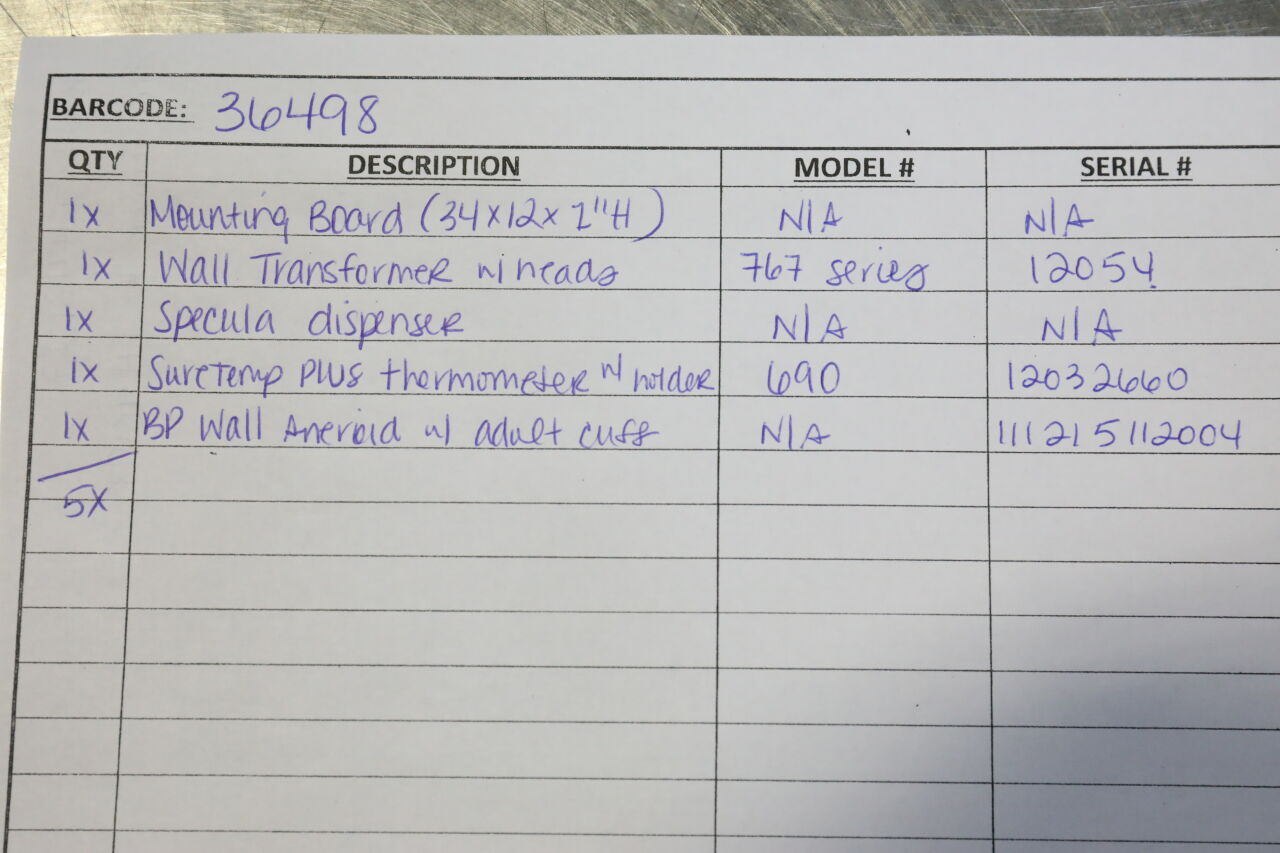 BARCODE: 36498
QTY DESCRIPTION MODEL # SERIAL #
1x Mounting Board (34x12x 1"H) N/A N/A
1x Wall Transformer w/ heads 767 series 12054
1x Specula dispenser N/A N/A
1x SureTemp PLUS thermometer w/ holder 690 12032660
1x BP Wall Aneroid w/ adult cuff N/A 111215112004
5x